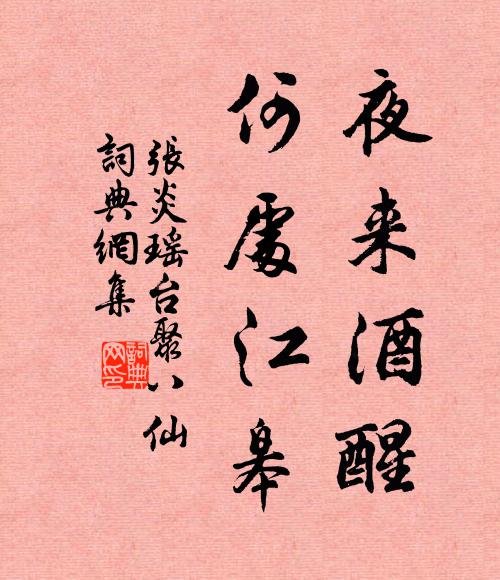 夜来酒醒
何處江皋
張炎瑶台聚八仙
詞典網集
詞典網印